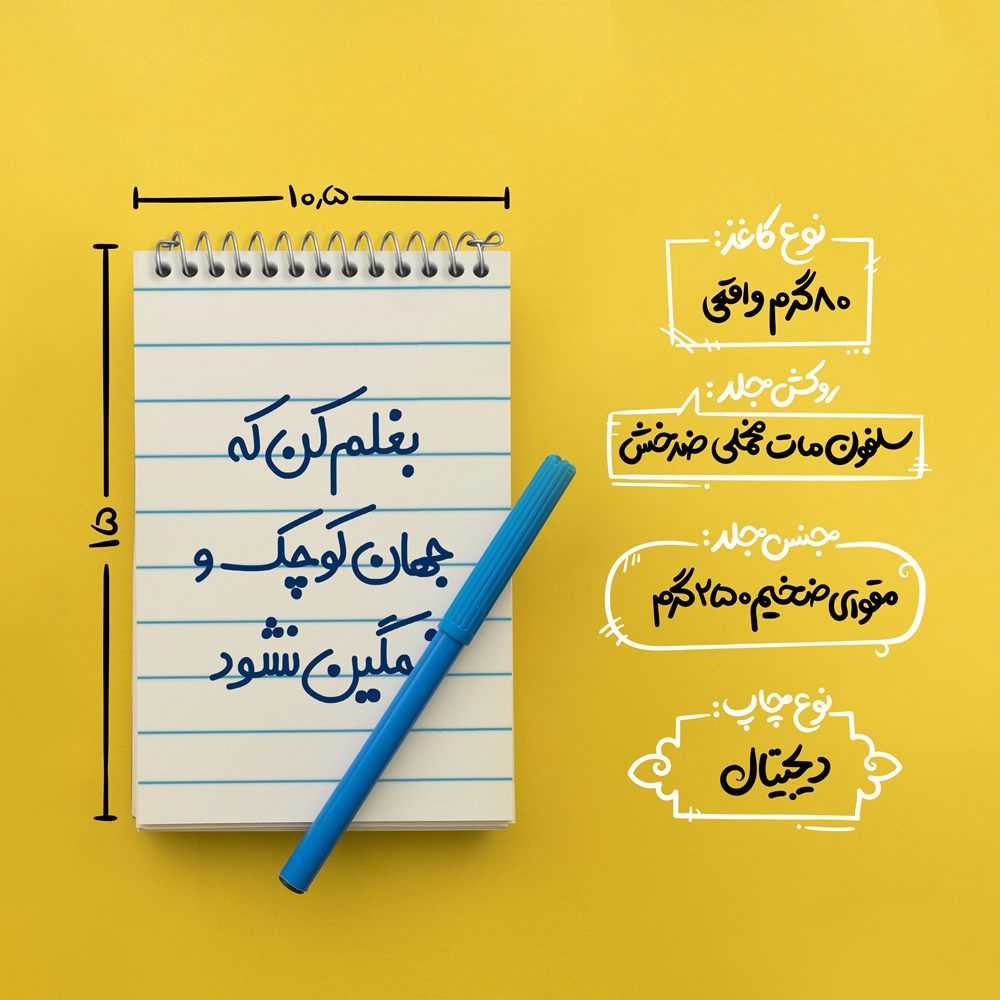 ۱۰٫۵
۱۵
بغلم کن که
جهان کوچک و
غمگین نشود
نوع کاغذ:
۸۰ گرم واقعی
روکش جلد:
سلفون مات مخملی ضدخش
جنس جلد:
مقوای ضخیم ۲۵۰ گرم
نوع چاپ:
دیجیتال